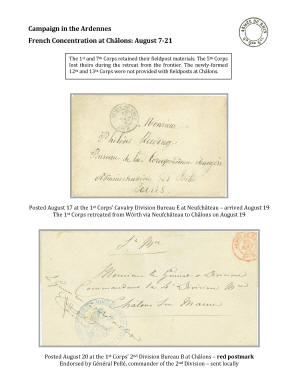 Campaign in the Ardennes
French Concentration at Châlons: August 7-21
The 1st and 7th Corps retained their fieldpost materials. The 5th Corps
lost theirs during the retreat from the frontier. The newly-formed
12th and 13th Corps were not provided with fieldposts at Châlons.
Monsieur
Bureau de la Correspondance étrangère
Administration des Postes
Paris
Posted August 17 at the 1st Corps' Cavalry Division Bureau E at Neufchâteau – arrived August 19
The 1st Corps retreated from Wörth via Neufchâteau to Châlons on August 19
Monsieur le Général de Division
Commandant la 4e Division Mre
Chalons Sur Marne
Posted August 20 at the 1st Corps' 2nd Division Bureau B at Châlons – red postmark
Endorsed by Général Pellé, commander of the 2nd Division – sent locally